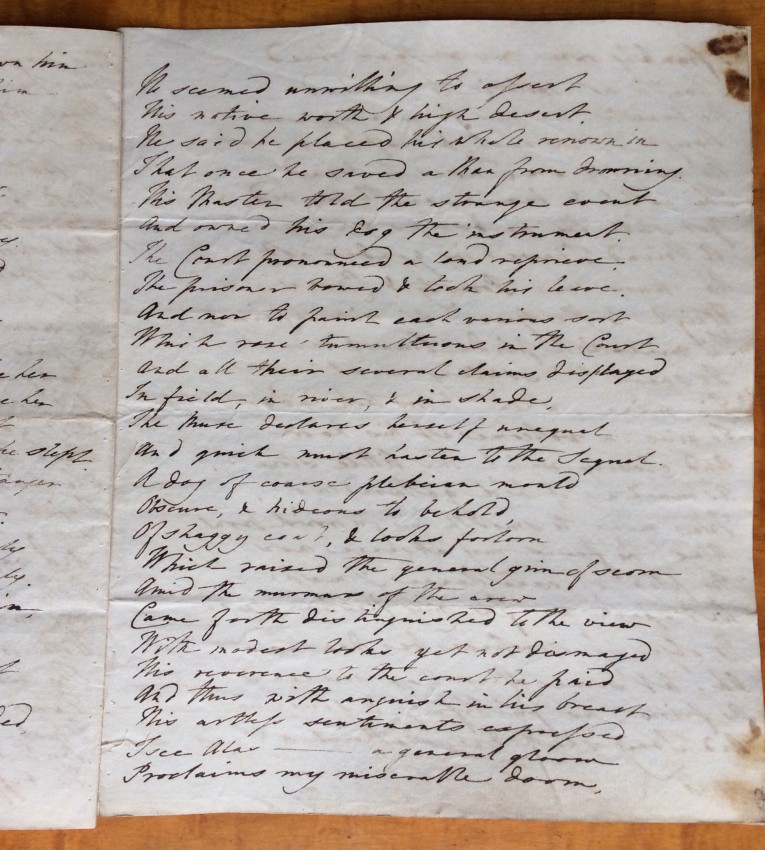 wn him
him
he her
e her
he stept
anger
ly
ly.
in,
ded,
He seemed unwilling to assert
His native worth & high desert.
He said he placed his whole renown in
That once he saved a Man from drowning.
His Master told the strange event
And owned his Dog the instrument.
The Court pronounced a loud reprieve.
The prisoner bowed & took his leave.
And now to paint each various sort
Which rose tumultuous in the Court
And all their several claims displayed
In field, in river, & in shade,
The Muse declares herself unequal
And quick must hasten to the Sequel.
A dog of coarse plebeian mould
Obscure, & hideous to behold,
Of shaggy coat, & looks forlorn
Which raised the general grin of scorn
Amid the murmurs of the crew
Came forth distinguished to the view
With modest looks yet not dismayed
His reverence to the court he paid
And thus with anguish in his breast
His artless sentiments expressed
I see Alas — a general gloom
Proclaims my miserable doom,